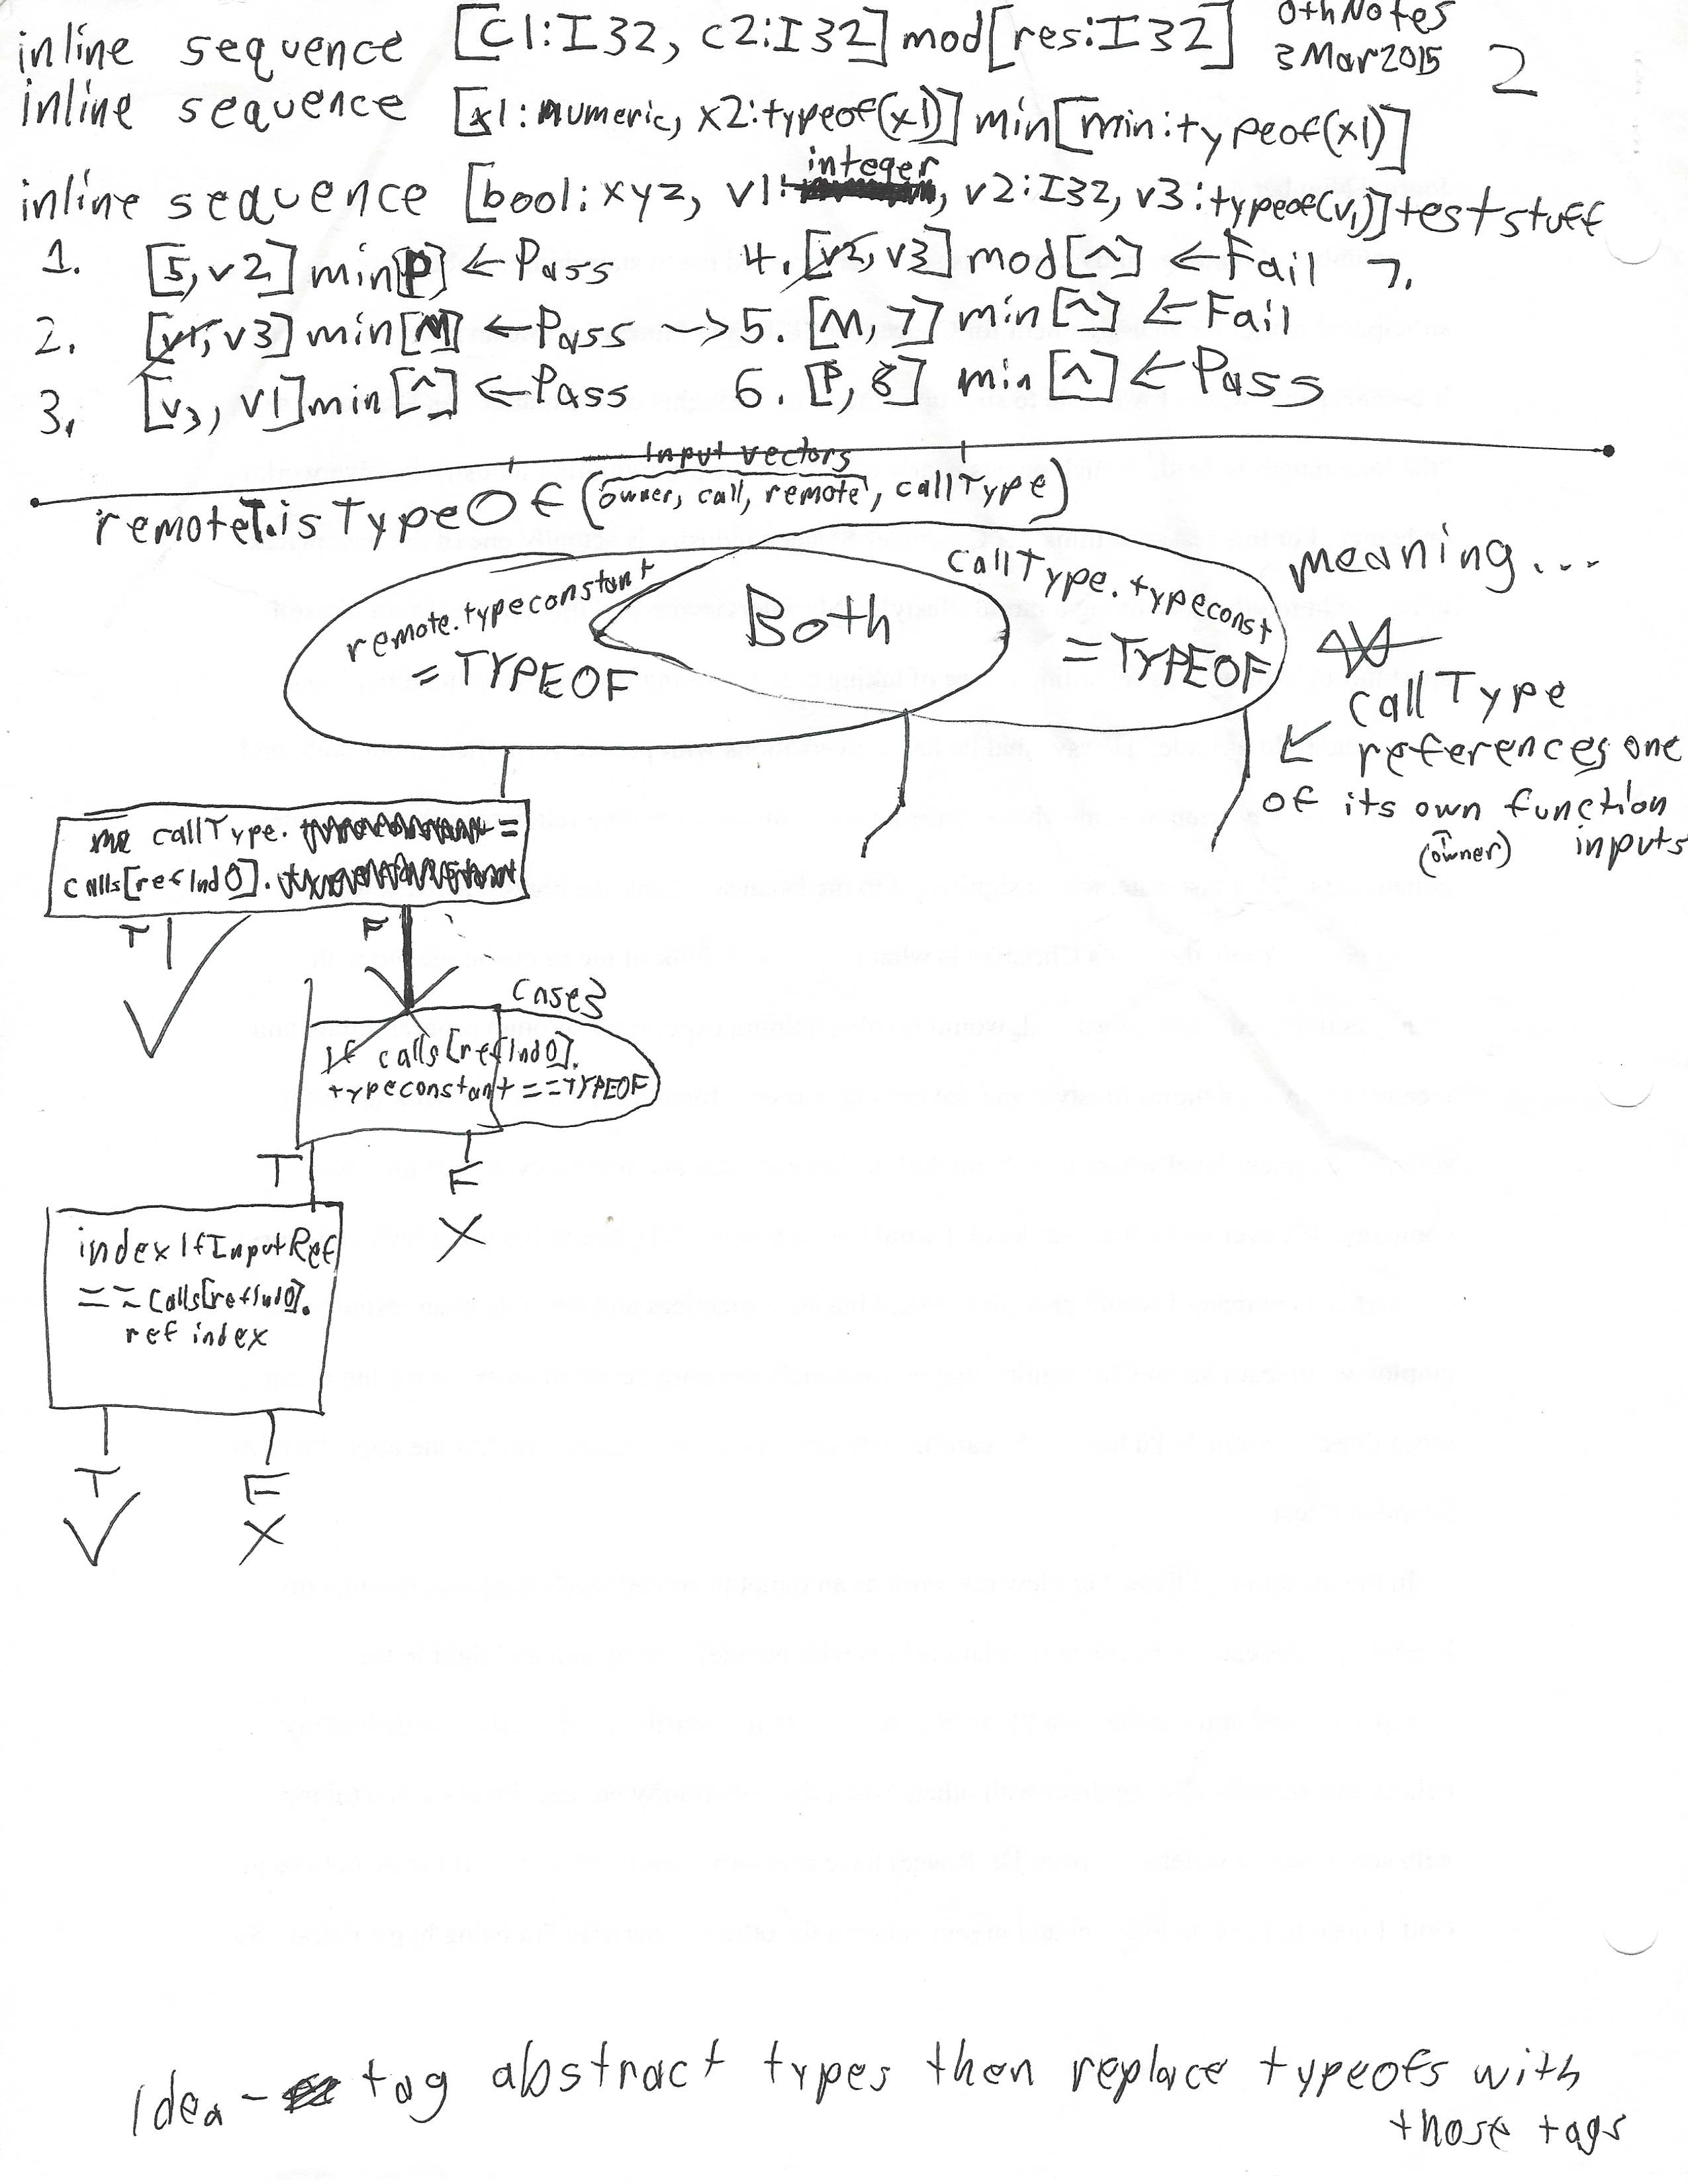 inline sequence [c1:I32, c2:I32] mod[res:I32]
OthNotes
3Mar2015
2
inline sequence [x1:numeric, x2:typeof(x1)] min[min:typeof(x1)]
integer
inline sequence [bool:xyz, v1:, v2:I32, v3:typeof(v1)] teststuff
1. [5, v2] min[P] ← Pass
4. [v2, v3] mod[^] ← Fail
7.
2. [v1, v3] min[M] ← Pass → 5. [M, 7] min[^] ← Fail
3. [v3, v1] min[^] ← Pass
6. [P, 8] min[^] ← Pass
Input vectors
remoteT.isTypeOf(owner, call, remote, callType)
remote.typeconstant
= TYPEOF
Both
callType.typeconst
= TYPEOF
meaning...
callType
references one
of its own function
(owner) inputs
callType. =
calls[refInd0].
T
F
Case3
If calls[refInd0].
typeconstant == TYPEOF
T
F
X
indexIfInputRef
== calls[refInd0].
ref index
T
F
X
Idea - tag abstract types then replace typeofs with
those tags